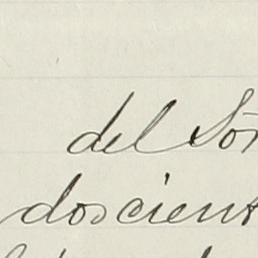 del Sor
doscient